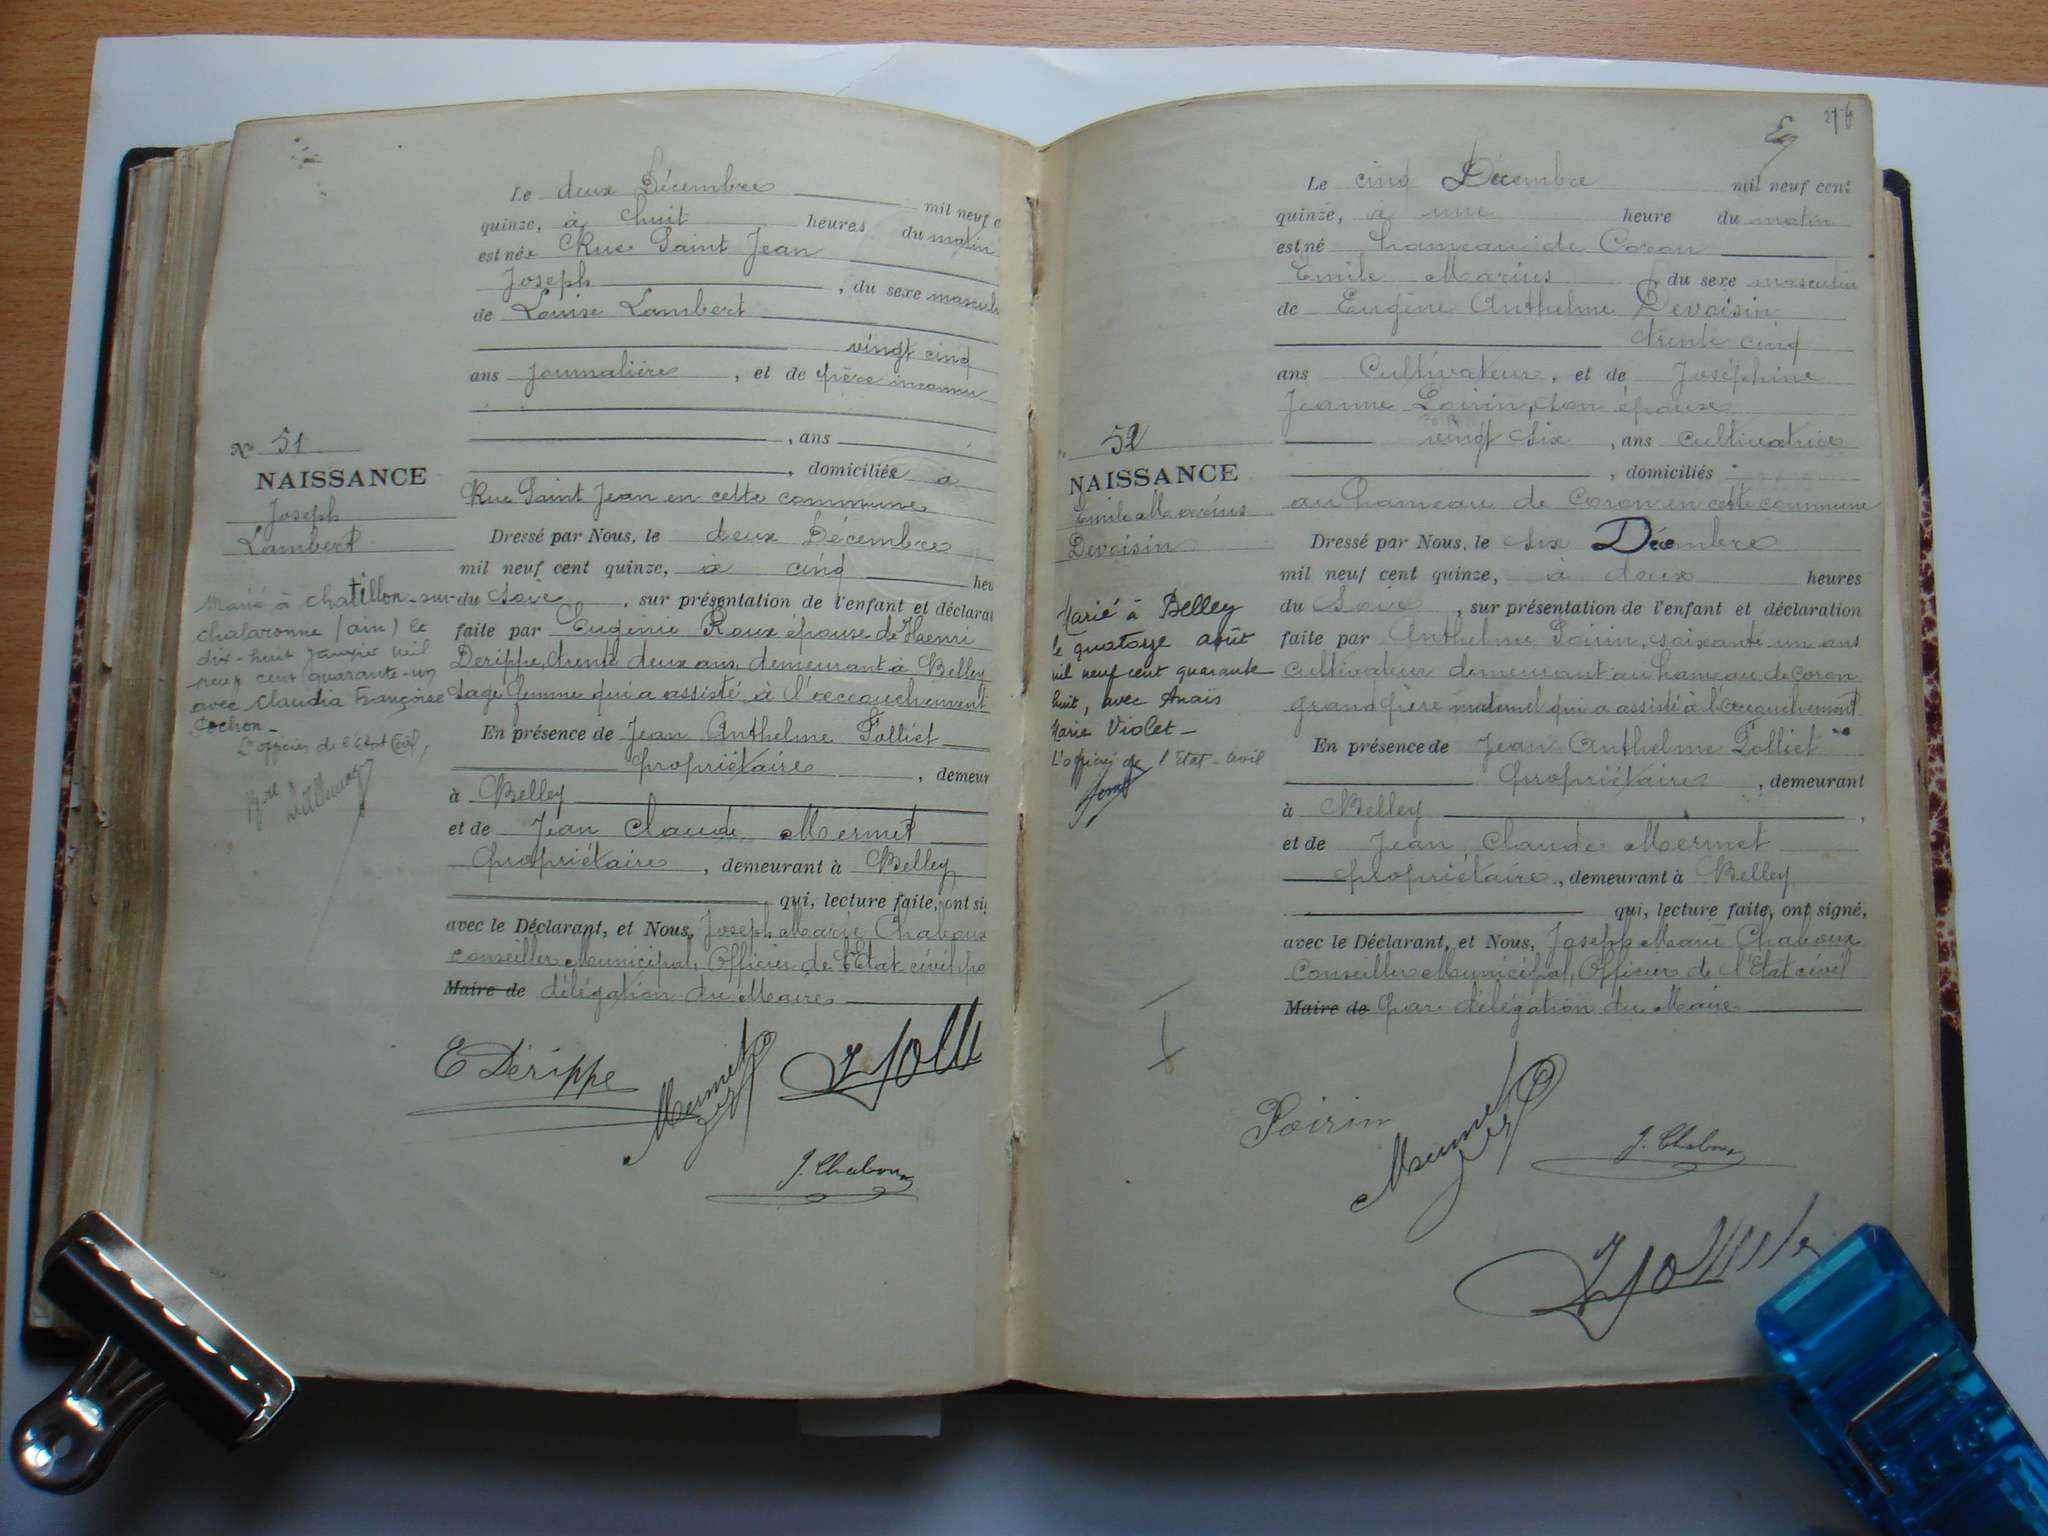 Le deux Décembre mil neuf c
quinze, à huit heures du matin
est née Rue Saint Jean
Joseph, du sexe mascul
de Louise Lambert
vingt cinq
ans journalière, et de père inconnu
, ans
, domiciliée à
Rue Saint Jean en cette commune
Nº 51
NAISSANCE
Joseph
Lambert
Dressé par Nous, le deux Décembre
mil neuf cent quinze, à cinq heu
du Soir, sur présentation de l'enfant et déclarat
faite par Eugénie Roux épouse de Haenri
Derippe, trente deux ans, demeurant à Belley
sage femme qui a assisté à l'accouchement
En présence de Jean Anthelme Folliet
propriétaire, demeur
à Belley
et de Jean Claude Mermet
propriétaire, demeurant à Belley
qui, lecture faite, ont sig
avec le Déclarant, et Nous, Joseph Marie Chaboux
Conseiller Municipal, Officier de l'Etat civil pa
Maire de délégation du Maire
Marié à Chatillon-sur-
chalaronne (ain) le
dix-huit janvier mil
neuf cent quarante-un
avec Claudia Françoise
Cochon_
L'officier de l'Etat Civil,
E Derippe
Mermet
J. Chaboux
276
Le cinq Décembre mil neuf cent
quinze, à une heure du matin
est né hameau de Coron
Emile Marius du sexe masculin
de Eugène Anthelme Devoisin
trente cinq
ans Cultivateur, et de Joséphine
Jeanne Poirin, son épouse
vingt six, ans cultivatrice
, domiciliés
au hameau de Coron en cette commune
52
NAISSANCE
Emile Marius
Devoisin
Dressé par Nous, le six Décembre
mil neuf cent quinze, à deux heures
du Soir, sur présentation de l'enfant et déclaration
faite par Anthelme Poirin, soixante un ans
cultivateur demeurant au hameau de Coron
grand père maternel qui a assisté à l'accouchement
En présence de Jean Anthelme Folliet
propriétaire, demeurant
à Belley,
et de Jean Claude Mermet
propriétaire, demeurant à Belley
qui, lecture faite, ont signé,
avec le Déclarant, et Nous, Joseph Marie Chaboux
Conseiller Municipal, Officier de l'Etat civil
Maire de par délégation du Maire
Marié à Belley
le quatorze août
mil neuf cent quarante
huit, avec Anaïs
Marie Violet_
L'officier de l'Etat-civil
Poirin
Mermet
J. Chaboux